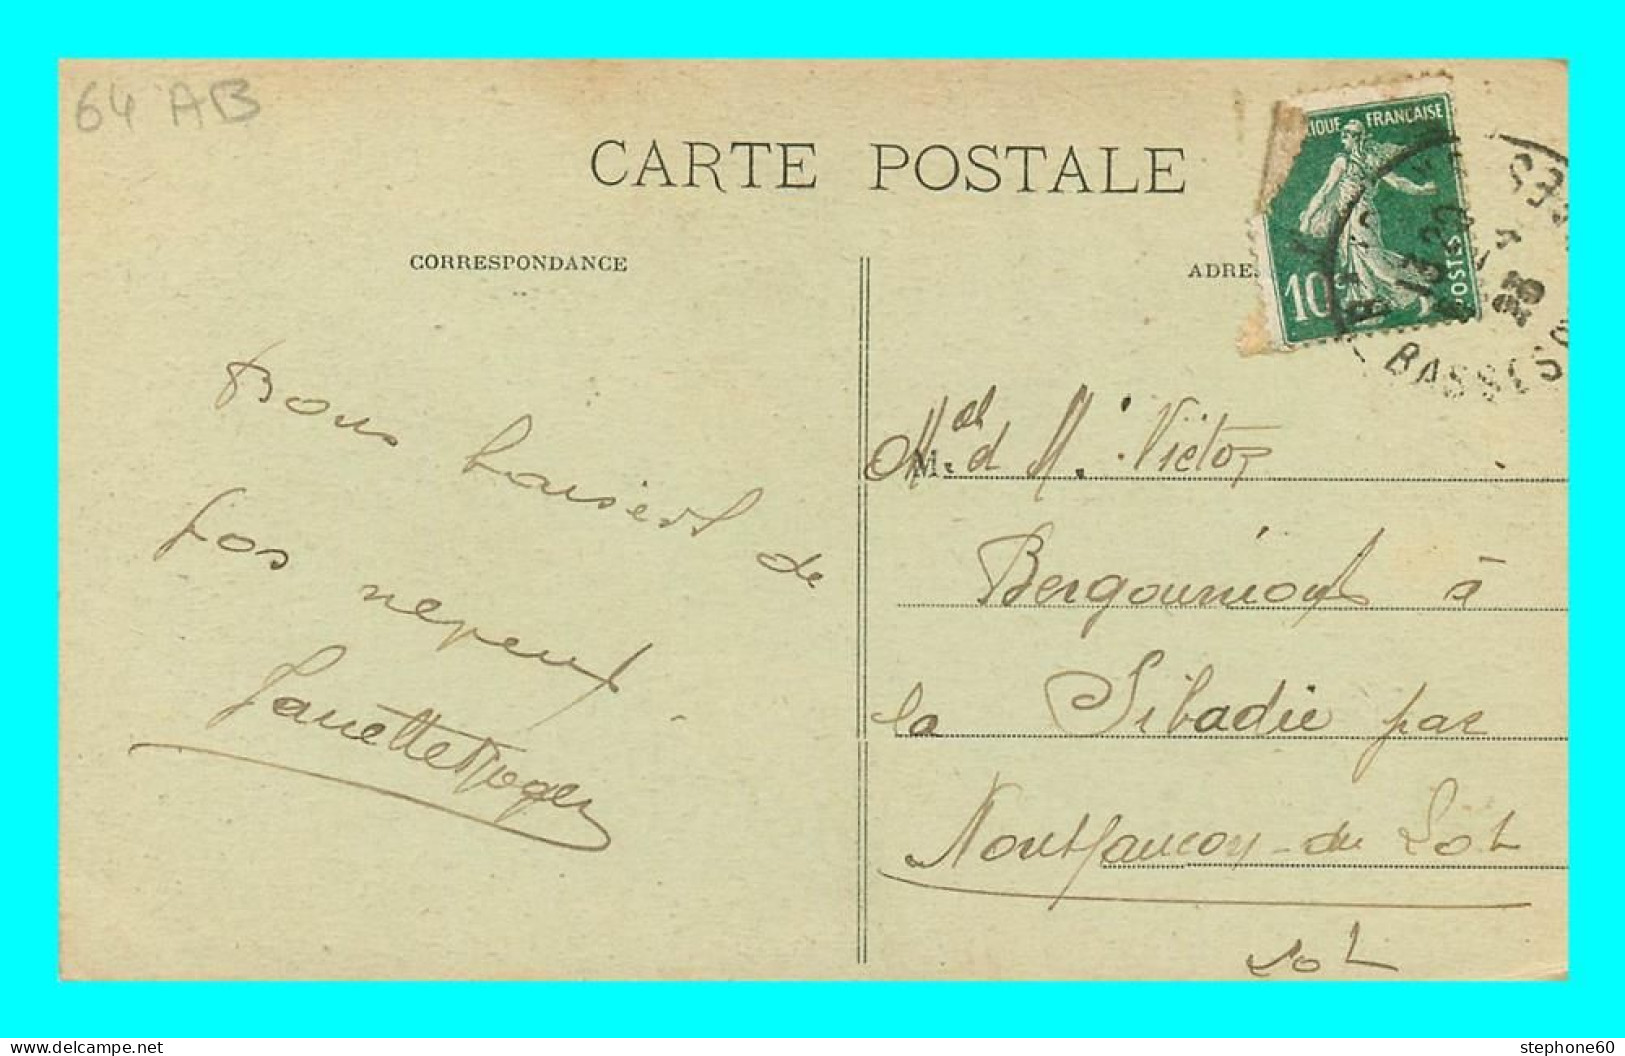 64 AB
CARTE POSTALE
CORRESPONDANCE
ADRES
IQUE FRANÇAISE
10
POSTES
13
BASSES
Bons baisers de
vos neveux
Roger
M. et M. Victor
Bergounioux à
la Sibadie par
Montfaucon-du Lot
Lot
www.delcampe.net
stephone60